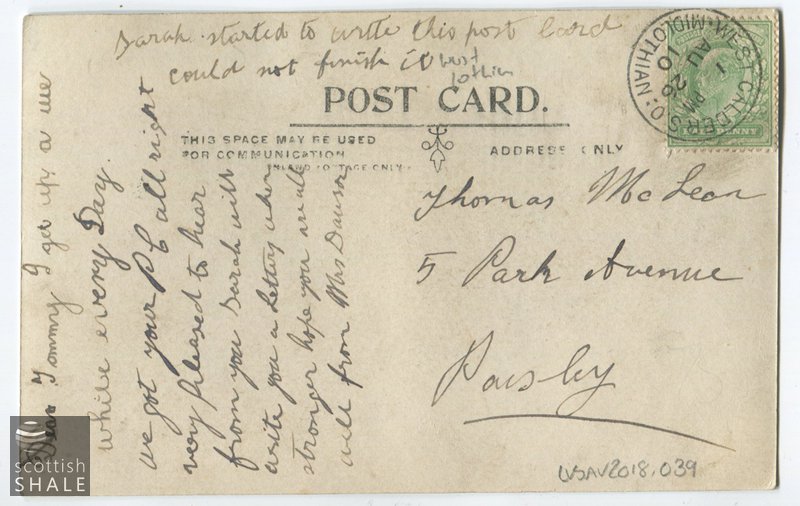 Sarah started to write this post Card
could not finish it
POST CARD.
THIS SPACE MAY BE USED
FOR COMMUNICATION
INLAND POSTAGE ONLY
ADDRESS ONLY
WEST CALDER S.O. MIDLOTHIAN
1 PM
AU 26
10
HALFPENNY
Thomas McLean
5 Park Avenue
Paisly
Dear Tommy I get up a we
while every Day.
we got your PC all right
very pleased to hear
from you Sarah will
write you a Letter when
stronger hope you are all
well from Mrs Dawson
LVSAV2018.039
scottish
SHALE